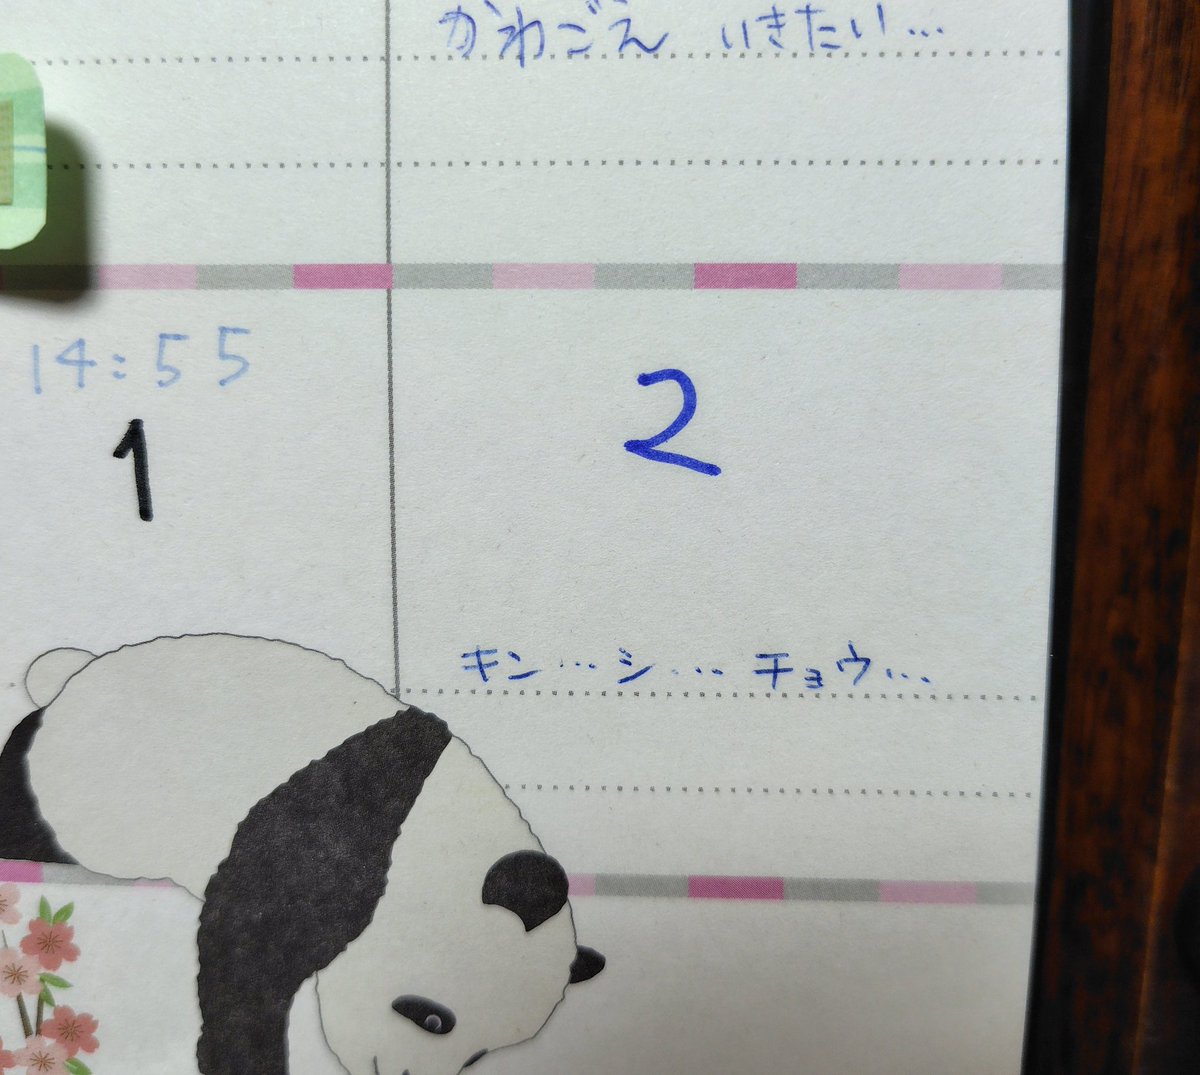 かわごえ いきたい…
14:55
1
2
キン…シ…チョウ…